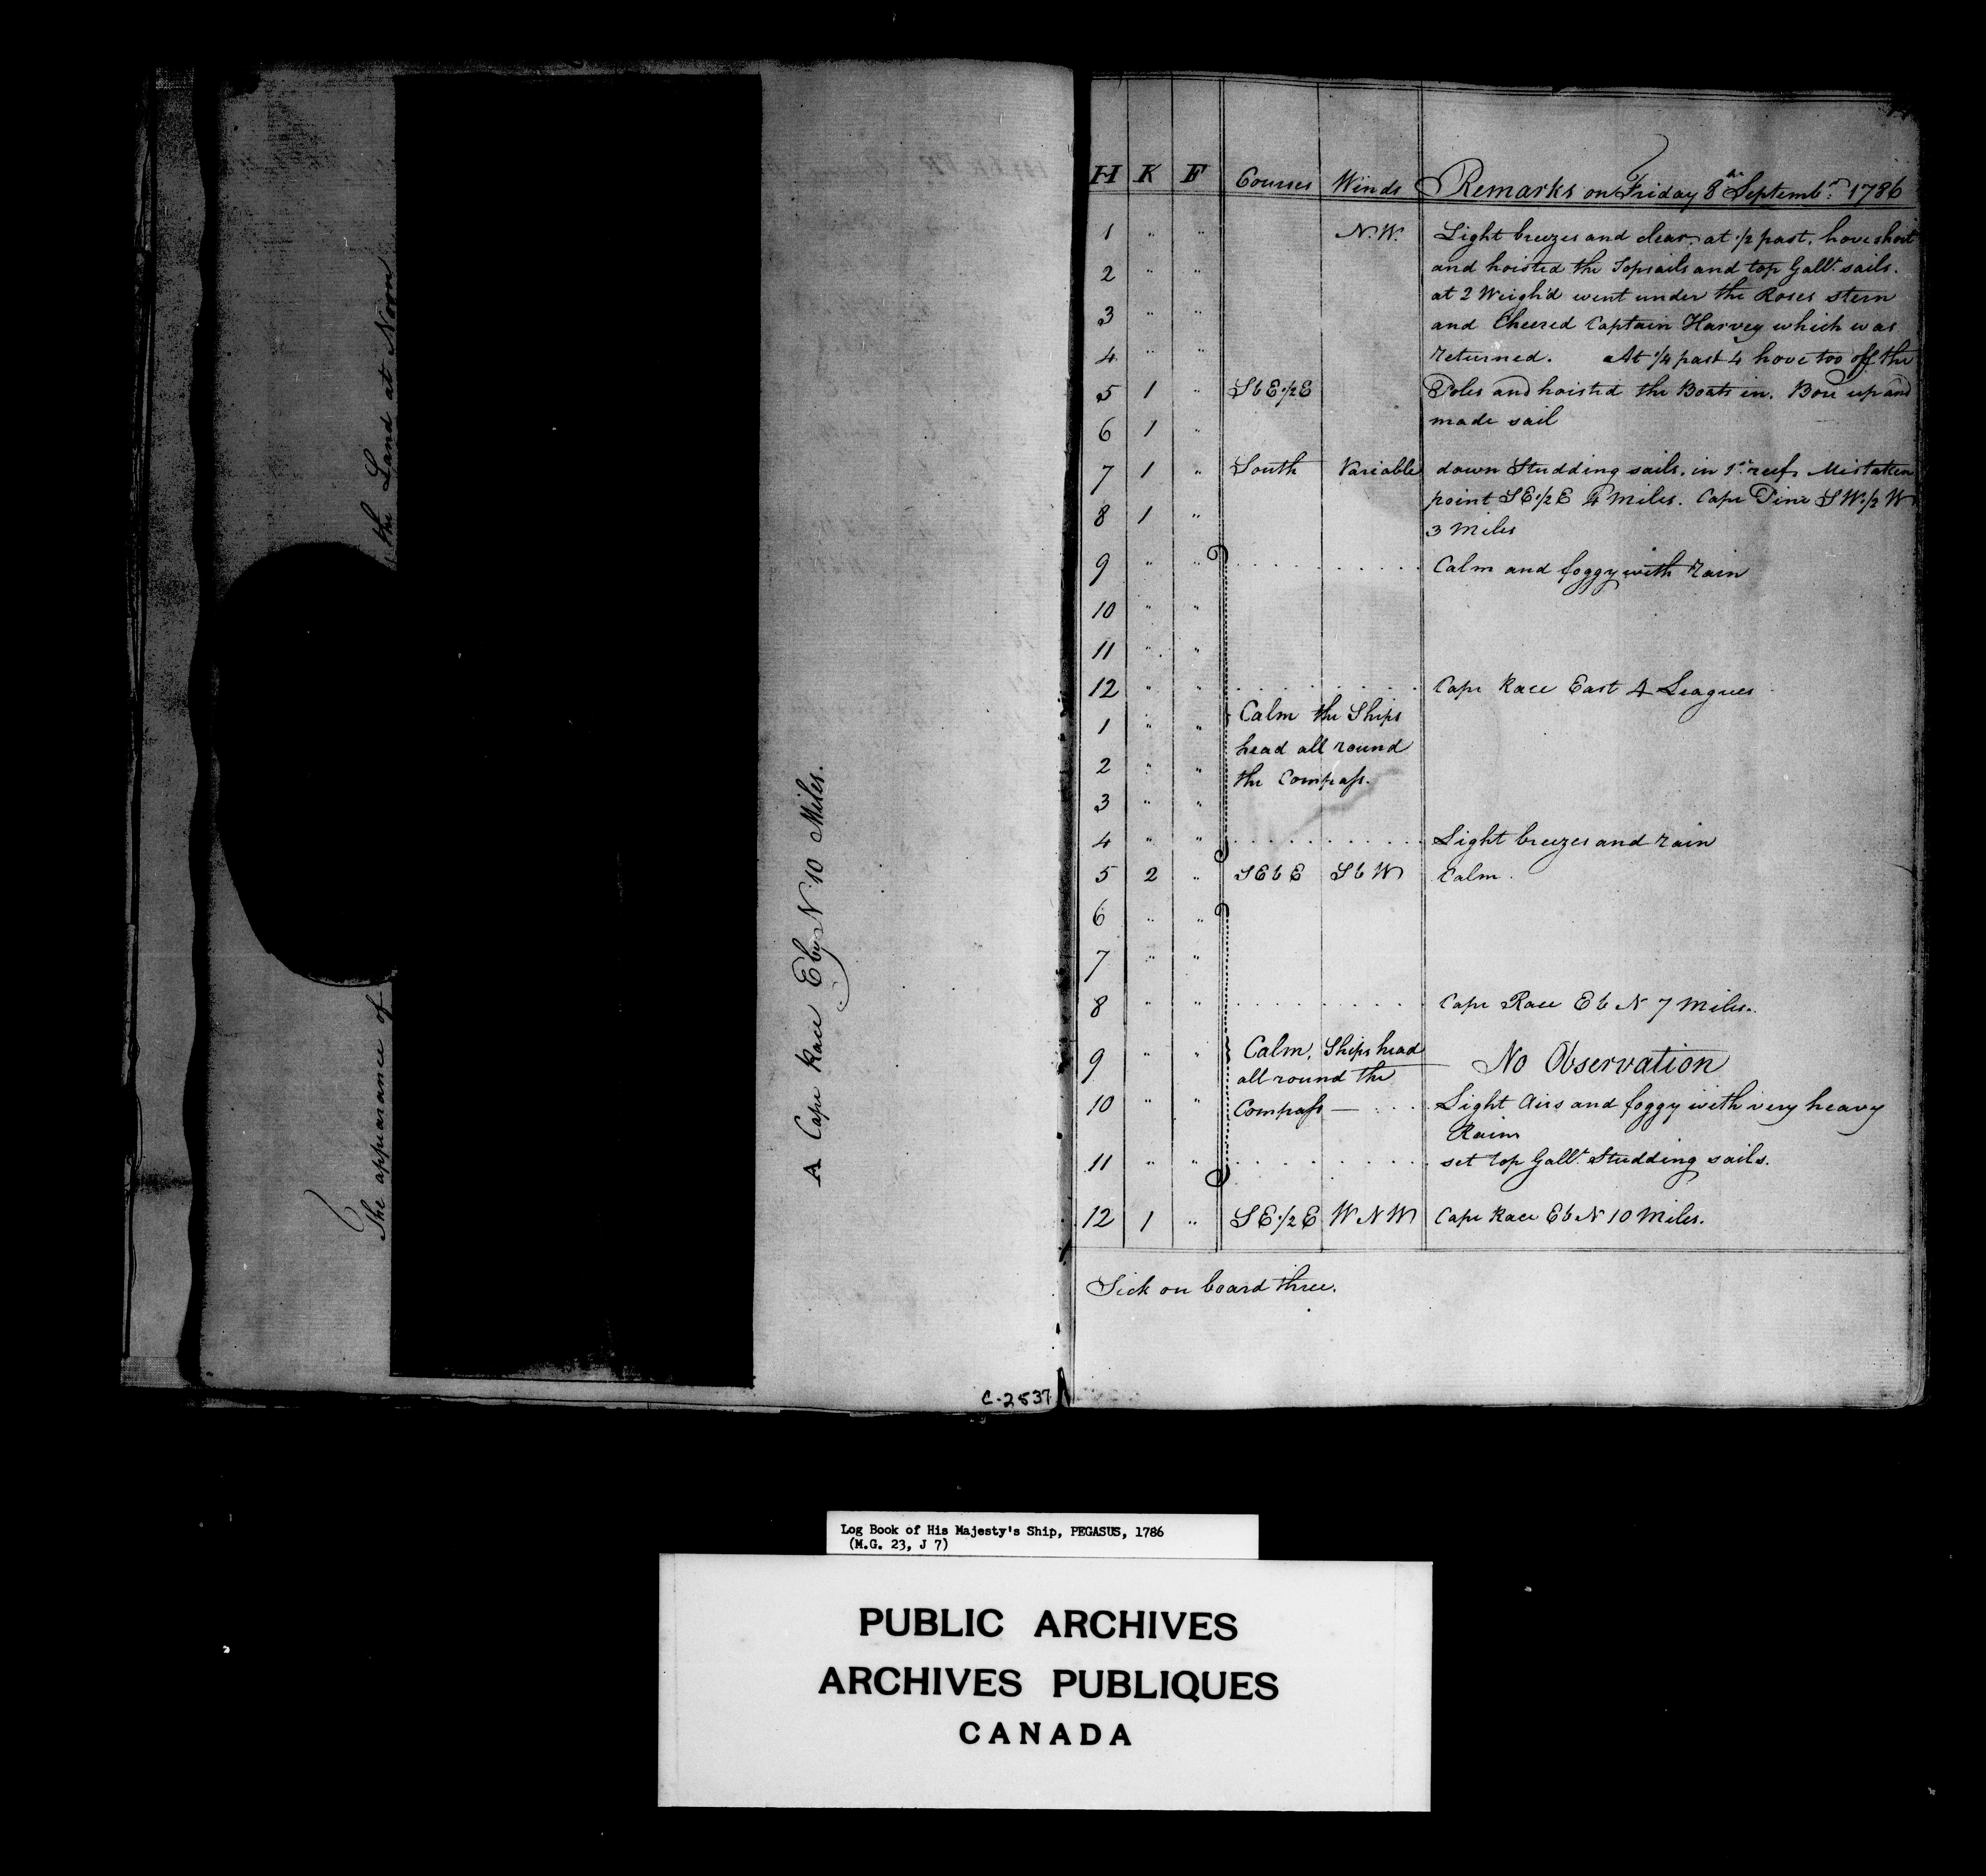 The appearance of the Land at Noon
A Cape Race E by N 10 Miles.
C-2837
H K F Courses Winds Remarks on Friday 8th Septembr. 1786
1 " " N.W. Light breezes and clear, at 1/2 past, hove short
2 " " and hoisted the Topsails and top Gallt. sails.
at 2 Weigh'd went under the Roses stern
3 " " and Cheered Captain Harvey which was
4 " " returned. At 1/4 past 4 hove too off the
5 1 " SbE 1/2 E Poles and hoisted the Boats in. Bore up and
6 1 " made sail
7 1 " South Variable down Studding sails, in 1st reefs Mistaken
point SE 1/2 E 4 Miles. Cape Pine SW 1/2 W
8 1 " 3 Miles
9 " " Calm and foggy with rain
10 " "
11 " "
12 " " Cape Race East 4 Leagues
1 " " Calm the Ships
head all round
2 " " the Compass.
3 " "
4 " " Light breezes and rain
5 2 " SEbE SbW Calm.
6 " "
7 " "
8 " " Cape Race EbN 7 Miles.
9 " " Calm, Ships head No Observation
all round the
10 " " Compass — Light Airs and foggy with very heavy
Rain
11 " " set top Gallt. Studding sails.
12 1 " SE 1/2 E WNW Cape Race EbN 10 Miles.
Sick on board three.
Log Book of His Majesty's Ship, PEGASUS, 1786
(M.G. 23, J 7)
PUBLIC ARCHIVES
ARCHIVES PUBLIQUES
CANADA